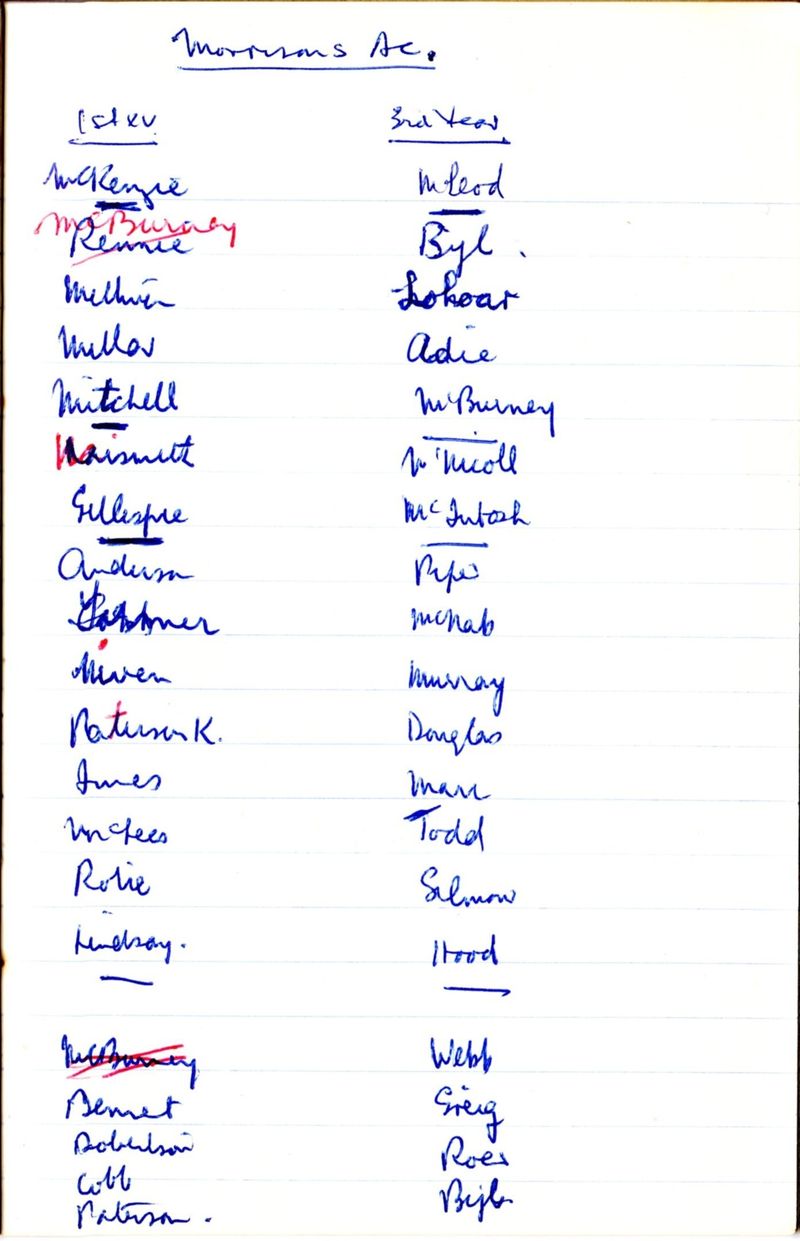 Morrisons Ac.
1st XV
McKenzie
McBurney
Rennie
Millar
Mitchell
Naismith
Gillespie
Anderson
Niven
Paterson K.
Innes
McFees
Robie
Lindsay.
McBurney
Bennet
Robertson
Cobb
Paterson.
3rd Year
McLeod
Byl.
Lohoar
Adie
McBurney
McNicoll
McIntosh
Piper
McNab
Murray
Douglas
Marr
Todd
Salmon
Hood
Webb
Greig